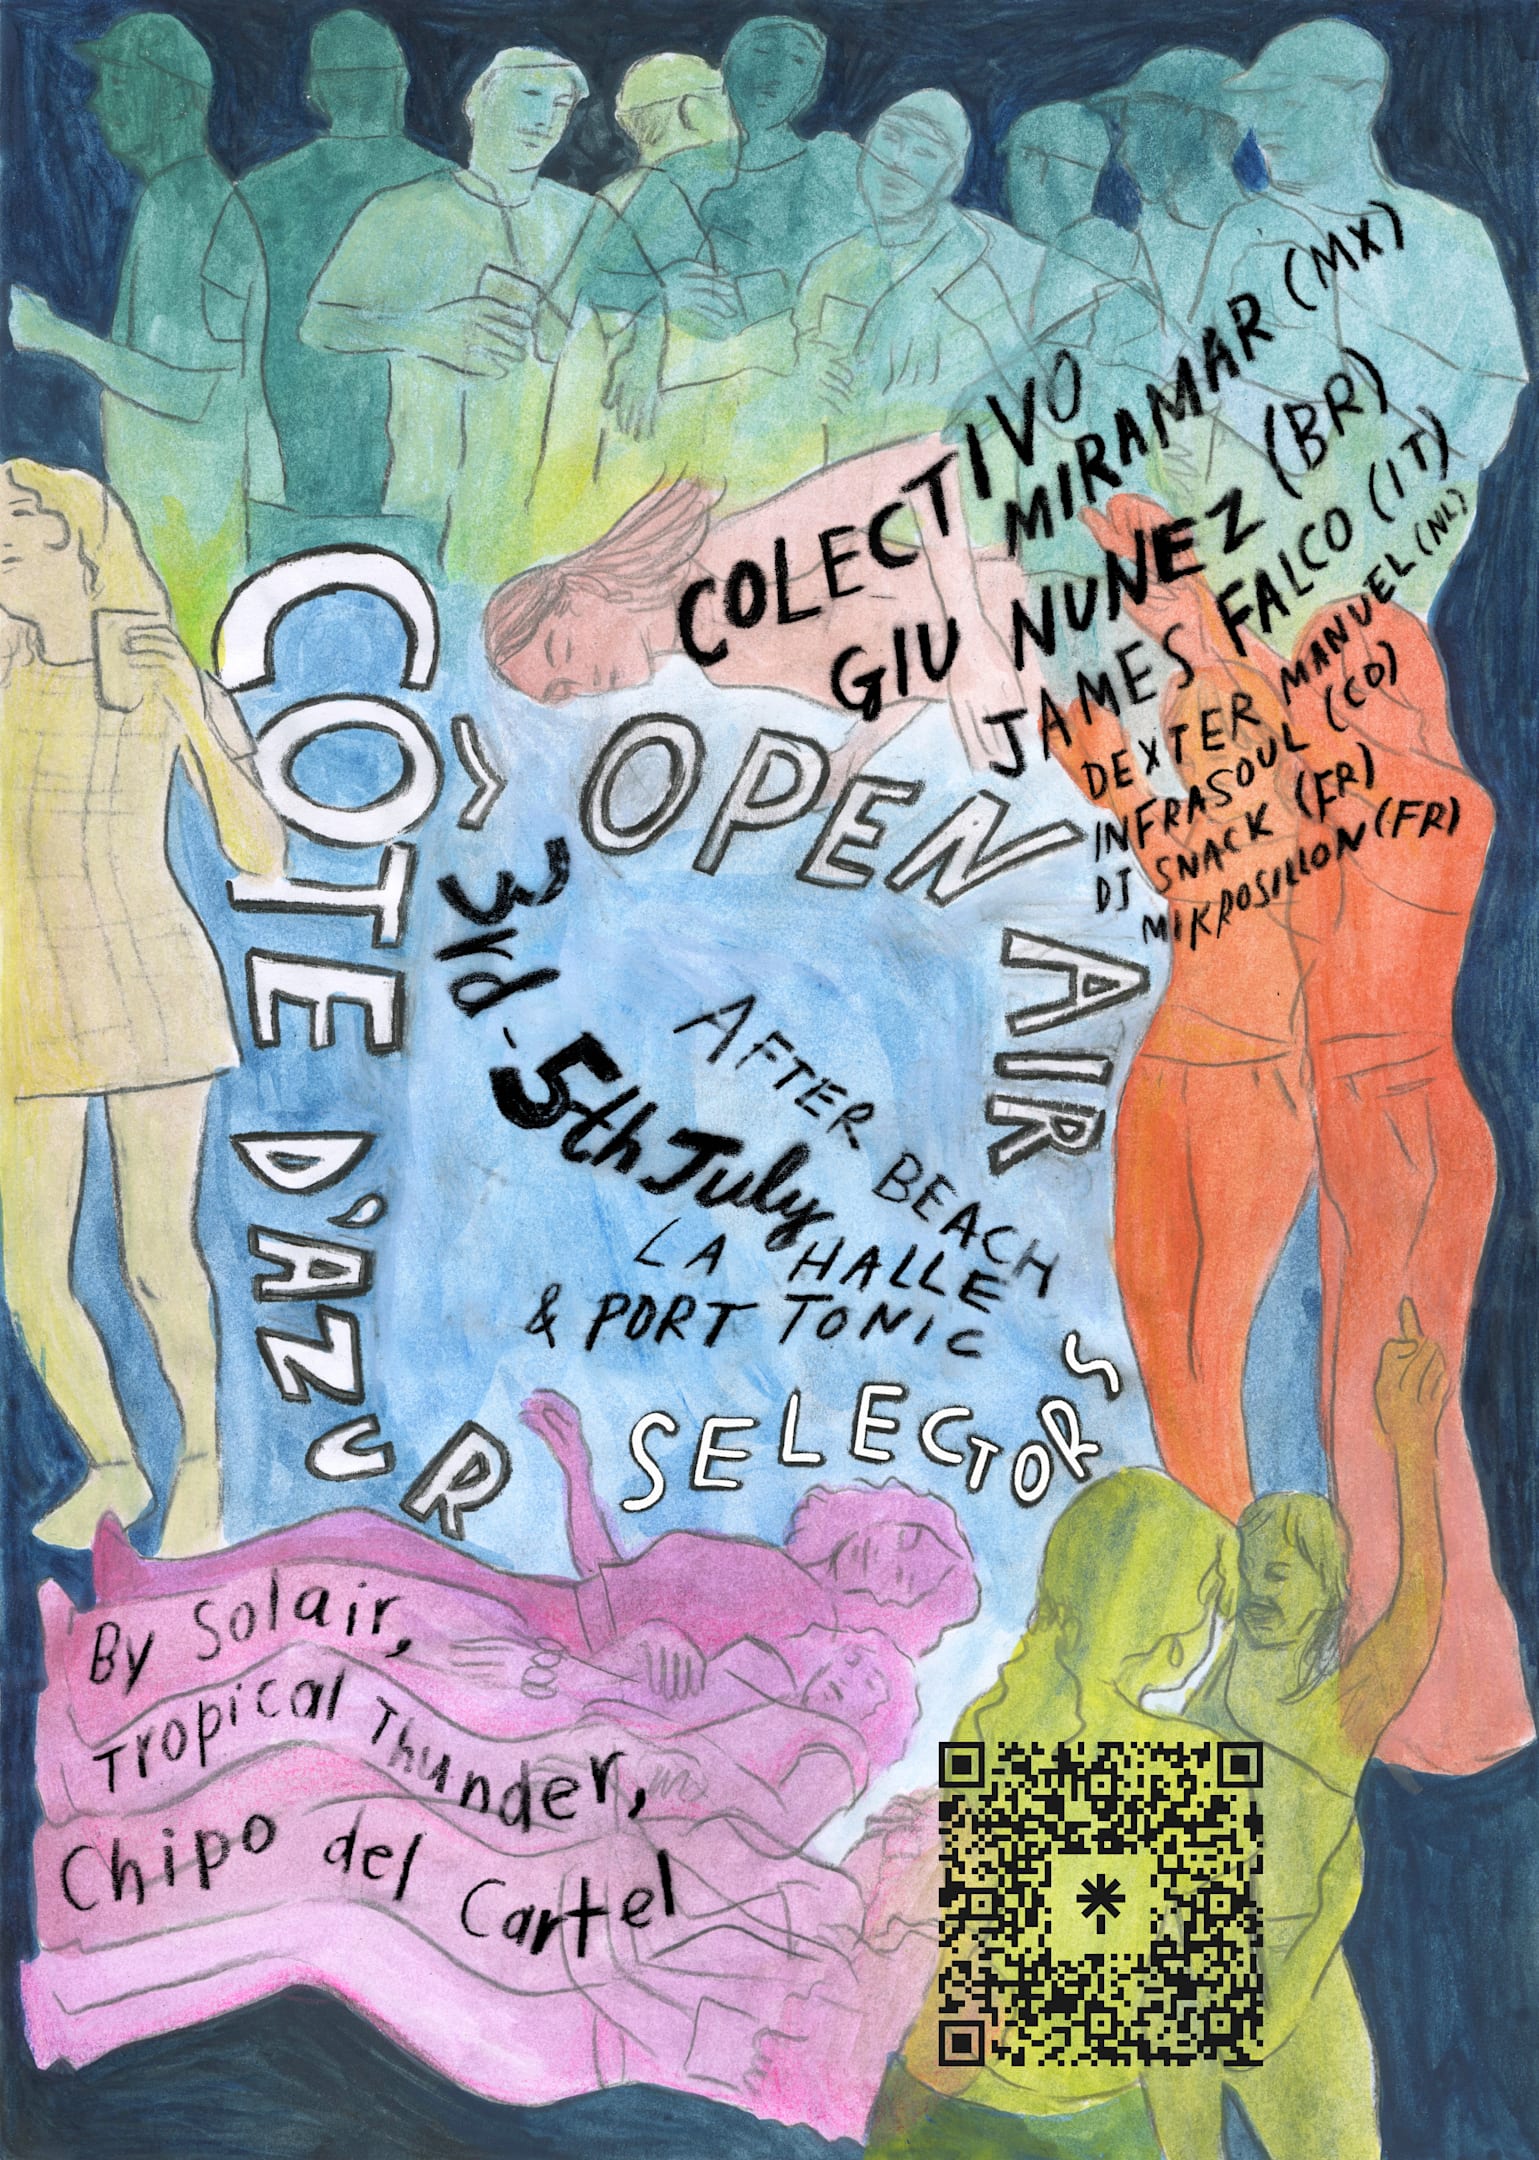 COLECTIVO
MIRAMAR (MX)
GIU NUNEZ (BR)
JAMES FALCO (IT)
DEXTER MANUEL (NL)
INFRASOUL (CO)
DJ SNACK (FR)
MIKROSILLON (FR)
CÔTE D'AZUR
OPEN AIR
3rd - 5th July
AFTER BEACH
LA HALLE
& PORT TONIC
SELECTORS
By Solair,
Tropical Thunder,
Chipo del Cartel